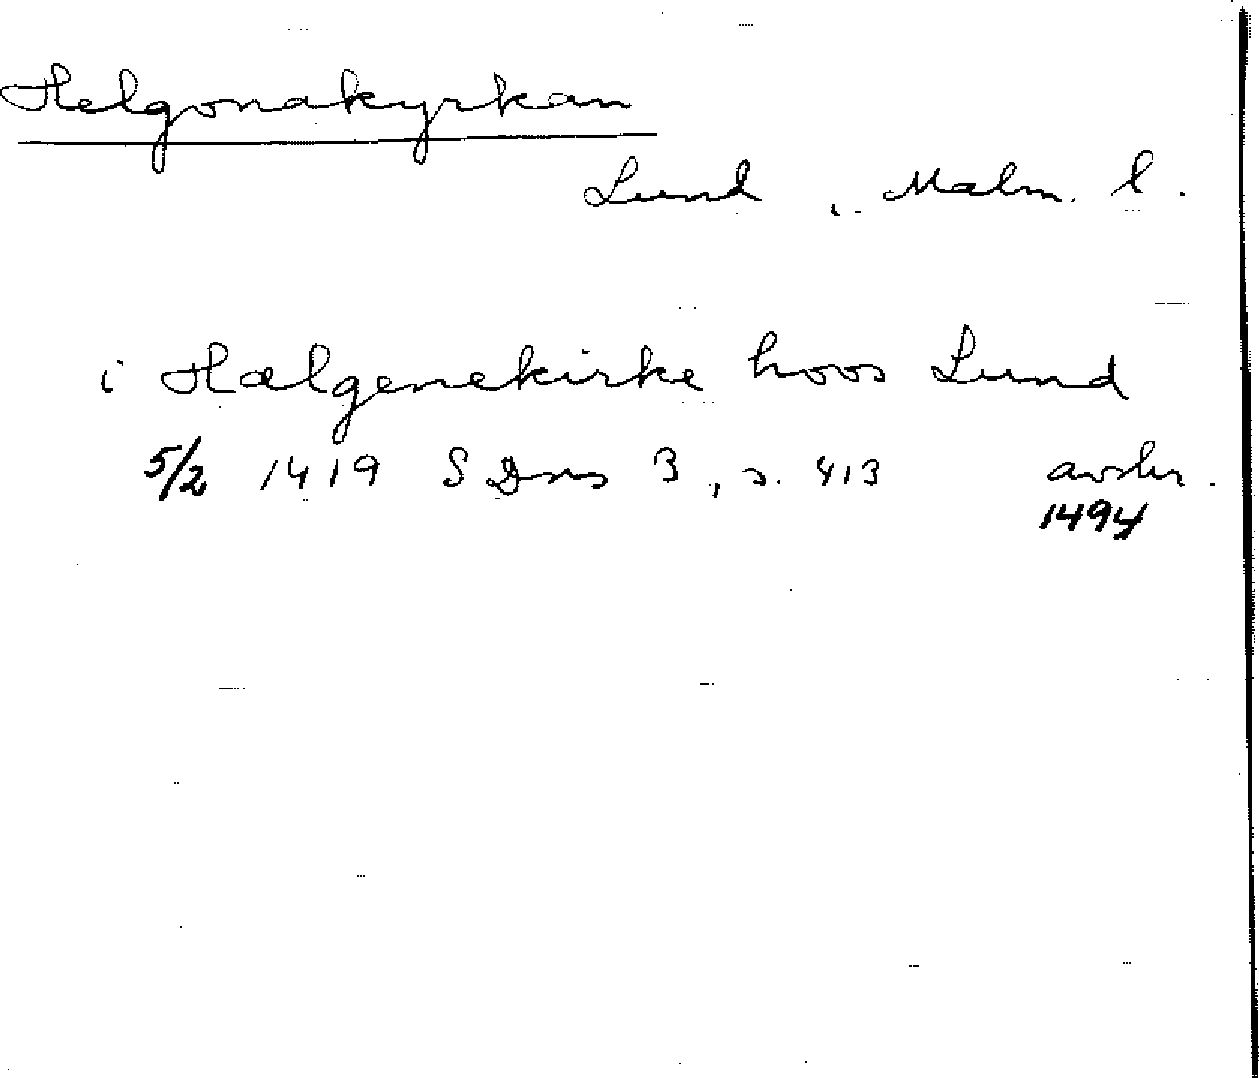 Helgonakyrkan
Lund, Malm. l.
i Hælgenekirke hoos Lund
5/2 1419 SDns 3, s. 413 avskr.
1494